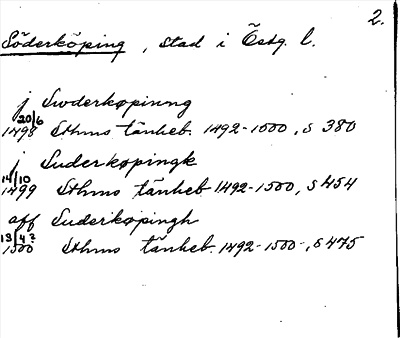 2.
Söderköping, stad i Östg. l.
j Swderkøpinng
20/6 1498 Sthms tänkeb. 1492-1500, s 380
j Suderkøpingk
14/10 1499 Sthms tänkeb 1492-1500, s 454
aff Suderkøpingh
13/4? 1500 Sthms tänkeb. 1492-1500-, s 475